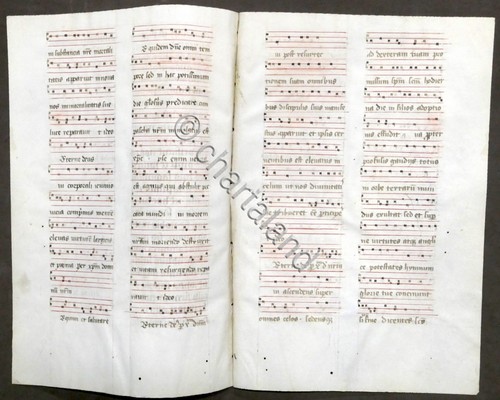 in substantia nre mortali
tatis apparuit in nova
nos immortalitatis sue
luce reparavit et ideo
Eterne deus
in corporali ieiunio
vicia comprimis mentem
elevas virtutem largiris
et premia per xpm dnm
nrm
Equum et salutare
Te quidem dne omni tem
pore sed in hac potissimum
die gloriosius predicare cum
pascha nrm immolatus est
xps. Ipse enim verus
est agnus qui abstulit pec
cata mundi Qui mortem
nram moriendo destruxit
et vitam resurgendo repa
ravit et ideo
Eterne ds p xpm dnm
qui post resurrec
tionem suam omnibus
discipulis suis manifes
tus apparuit et ipsis cer
nentibus est elevatus in
celum ut nos divinitatis
tribueret esse participes
Eterne p xpm d nrm
Qui ascendens super
omnes celos · sedensq
ad dexteram tuam pro
missum spm scm hodier
na die in filios adoptio
nis effudit qua propter
profusis gaudiis totus
in orbe terrarum mun
dus exultat sed et sup
ne virtutes atq angeli
ce potestates hymnum
glorie tue concinunt
sine fine dicentes scs
© chartaland